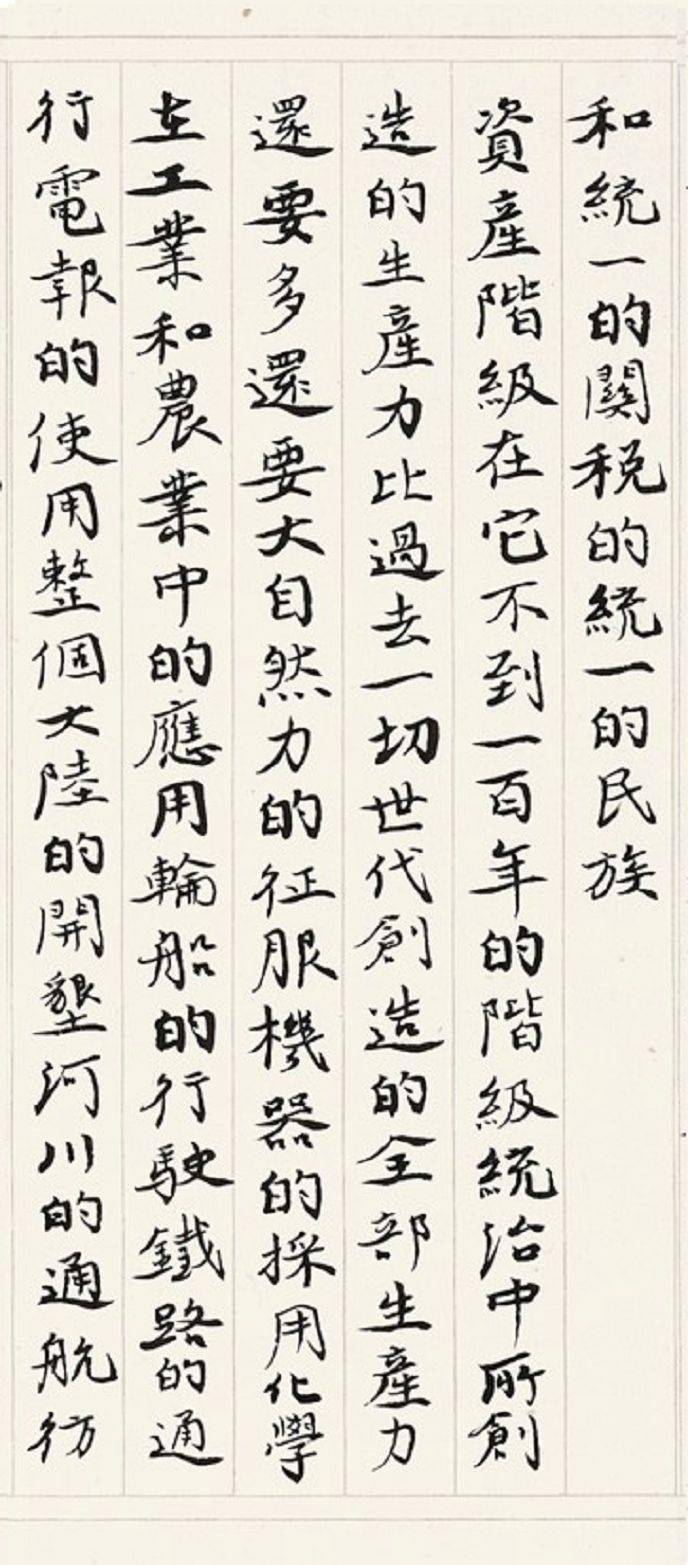 和統一的關税的統一的民族
資產階級在它不到一百年的階級統治中所創
造的生產力比過去一切世代創造的全部生產力
還要多還要大自然力的征服機器的採用化學
在工業和農業中的應用輪船的行駛鐵路的通
行電報的使用整個大陸的開墾河川的通航彷